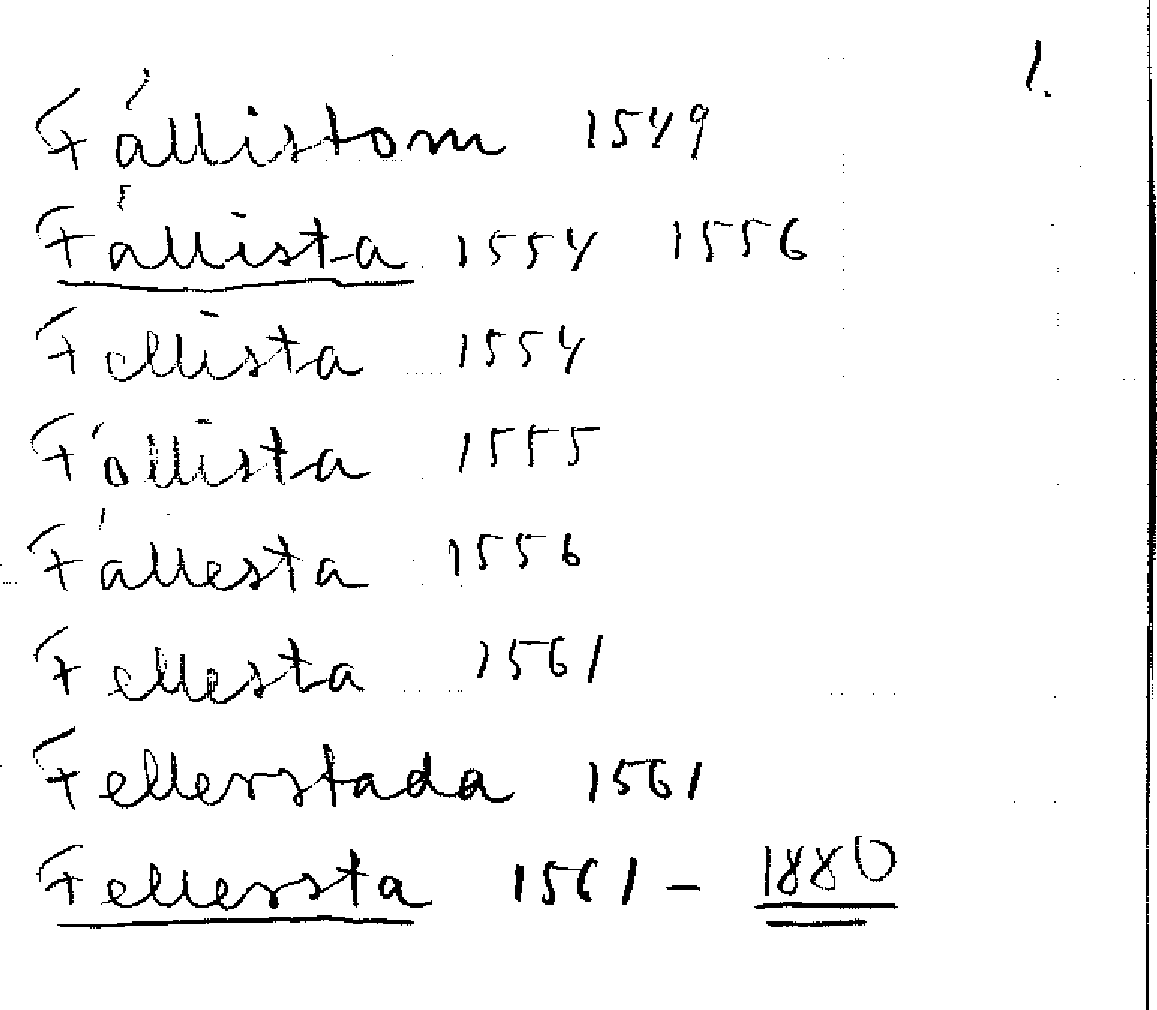 1.
Fällistom 1549
Fällista 1554 1556
Fellista 1554
Föllista 1555
Fällesta 1556
Fellesta 1561
Fellerstada 1561
Fellersta 1561 - 1880